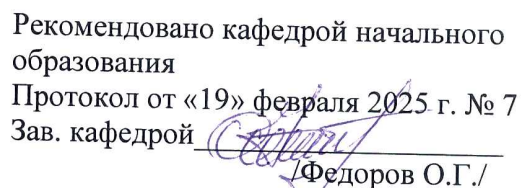 Рекомендовано кафедрой начального
образования
Протокол от «19» февраля 2025 г. № 7
Зав. кафедрой
/Федоров О.Г./